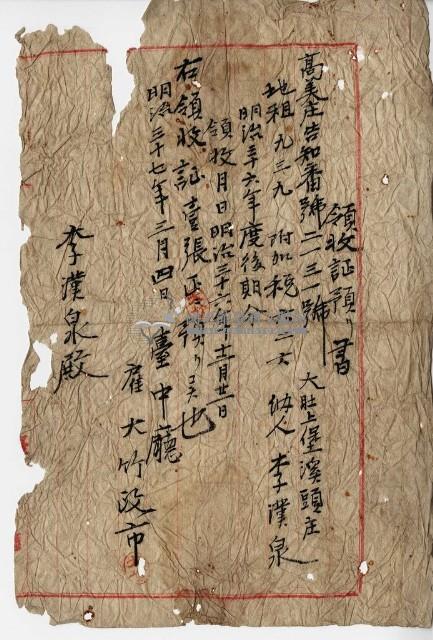 領收証預リ書
高美庄告知番號二一三一號
大肚上堡溪頭庄
地租 九三九 附加稅 納人 李漢泉
明治三十六年度後期
領收月日明治三十六年十二月廿一日
右領收証壹張正預リ也
明治三十七年三月四日
臺中廳
雇 大竹政市
李漢泉殿